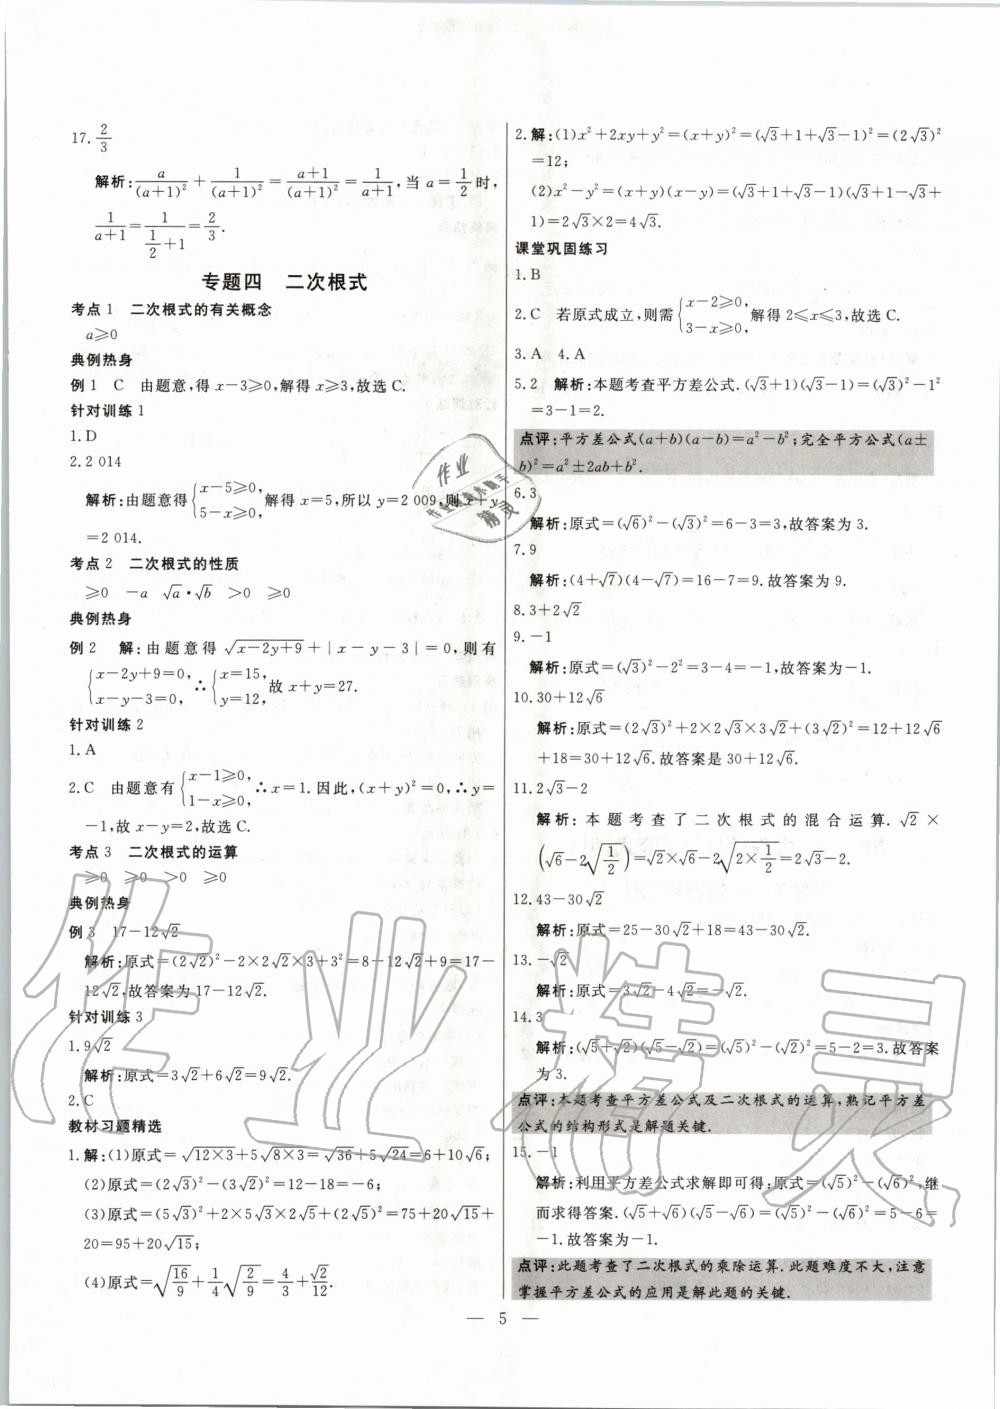 17. 2/3
解析: a/(a+1)² + 1/(a+1)² = (a+1)/(a+1)² = 1/(a+1),当 a=1/2 时,
1/(a+1) = 1/(1/2+1) = 2/3.
专题四 二次根式
考点1 二次根式的有关概念
a≥0
典例热身
例1 C 由题意,得 x-3≥0,解得 x≥3,故选C.
针对训练1
1.D
2.2 014
解析:由题意得{x-5≥0, 5-x≥0,解得 x=5,所以 y=2 009,则 x+y
=2 014.
考点2 二次根式的性质
≥0 -a √a·√b >0 ≥0
典例热身
例2 解:由题意得 √(x-2y+9)+|x-y-3|=0,则有
{x-2y+9=0, x-y-3=0,∴{x=15, y=12,故 x+y=27.
针对训练2
1.A
2.C 由题意有{x-1≥0, 1-x≥0,∴x=1.因此,(x+y)²=0,∴y=
-1,故 x-y=2,故选C.
考点3 二次根式的运算
≥0 ≥0 >0 ≥0
典例热身
例3 17-12√2
解析:原式=(2√2)²-2×2√2×3+3²=8-12√2+9=17-
12√2.故答案为17-12√2.
针对训练3
1.9√2
解析:原式=3√2+6√2=9√2.
2.C
教材习题精选
1.解:(1)原式=√(12×3)+5√(8×3)=√36+5√24=6+10√6;
(2)原式=(2√3)²-(3√2)²=12-18=-6;
(3)原式=(5√3)²+2×5√3×2√5+(2√5)²=75+20√15+
20=95+20√15;
(4)原式=√(16/9)+1/4√(2/9)=4/3+√2/12.
2.解:(1)x²+2xy+y²=(x+y)²=(√3+1+√3-1)²=(2√3)²
=12;
(2)x²-y²=(x+y)(x-y)=(√3+1+√3-1)(√3+1-√3+
1)=2√3×2=4√3.
课堂巩固练习
1.B
2.C 若原式成立,则需{x-2≥0, 3-x≥0,解得 2≤x≤3,故选C.
3.A 4.A
5.2 解析:本题考查平方差公式.(√3+1)(√3-1)=(√3)²-1²
=3-1=2.
点评:平方差公式(a+b)(a-b)=a²-b²;完全平方公式(a±
b)²=a²±2ab+b².
6.3
解析:原式=(√6)²-(√3)²=6-3=3,故答案为3.
7.9
解析:(4+√7)(4-√7)=16-7=9.故答案为9.
8.3+2√2
9.-1
解析:原式=(√3)²-2²=3-4=-1,故答案为-1.
10.30+12√6
解析:原式=(2√3)²+2×2√3×3√2+(3√2)²=12+12√6
+18=30+12√6.故答案是30+12√6.
11.2√3-2
解析:本题考查了二次根式的混合运算.√2×
(√6-2√(1/2))=√2×√6-2√(2×1/2)=2√3-2.
12.43-30√2
解析:原式=25-30√2+18=43-30√2.
13.-√2
解析:原式=3√2-4√2=-√2.
14.3
解析:(√5+√2)(√5-√2)=(√5)²-(√2)²=5-2=3.故答案
为3.
点评:本题考查平方差公式及二次根式的运算,熟记平方差
公式的结构形式是解题关键.
15.-1
解析:利用平方差公式求解即可得:原式=(√5)²-(√6)²,继
而求得答案.(√5+√6)(√5-√6)=(√5)²-(√6)²=5-6=
-1.故答案为-1.
点评:此题考查了二次根式的乘除运算.此题难度不大,注意
掌握平方差公式的应用是解此题的关键.
— 5 —
作业精灵